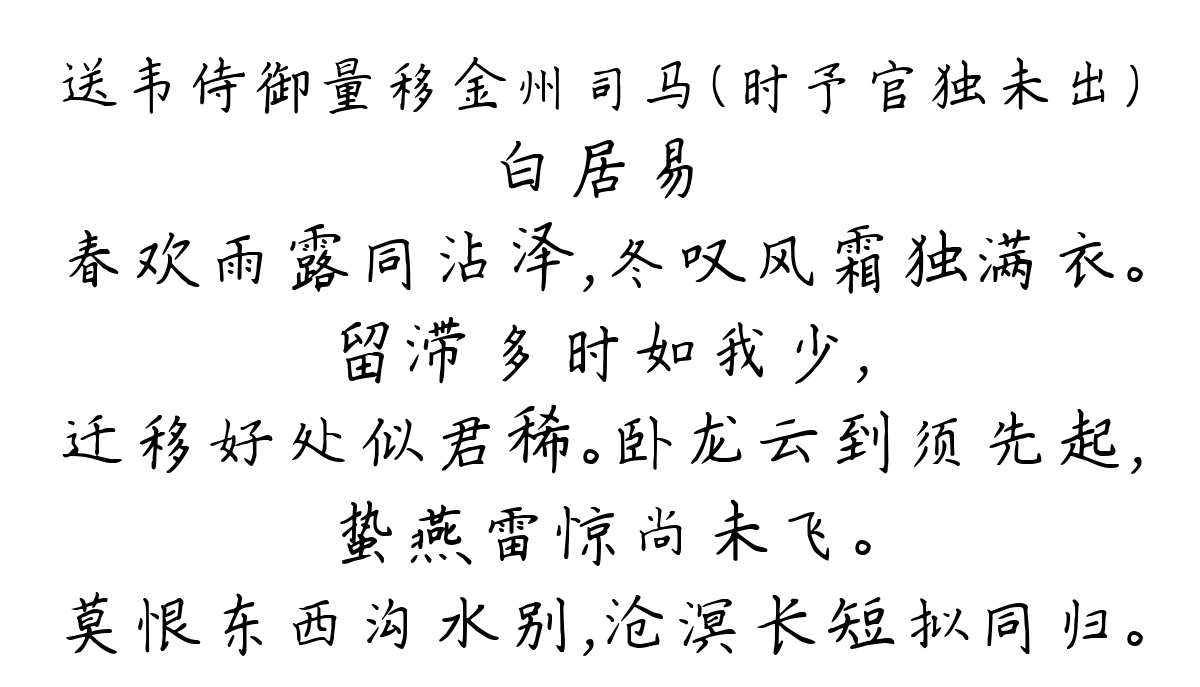 送韦侍御量移金州司马(时予官独未出)
白居易
春欢雨露同沾泽,冬叹风霜独满衣。
留滞多时如我少,
迁移好处似君稀。卧龙云到须先起,
蛰燕雷惊尚未飞。
莫恨东西沟水别,沧溟长短拟同归。